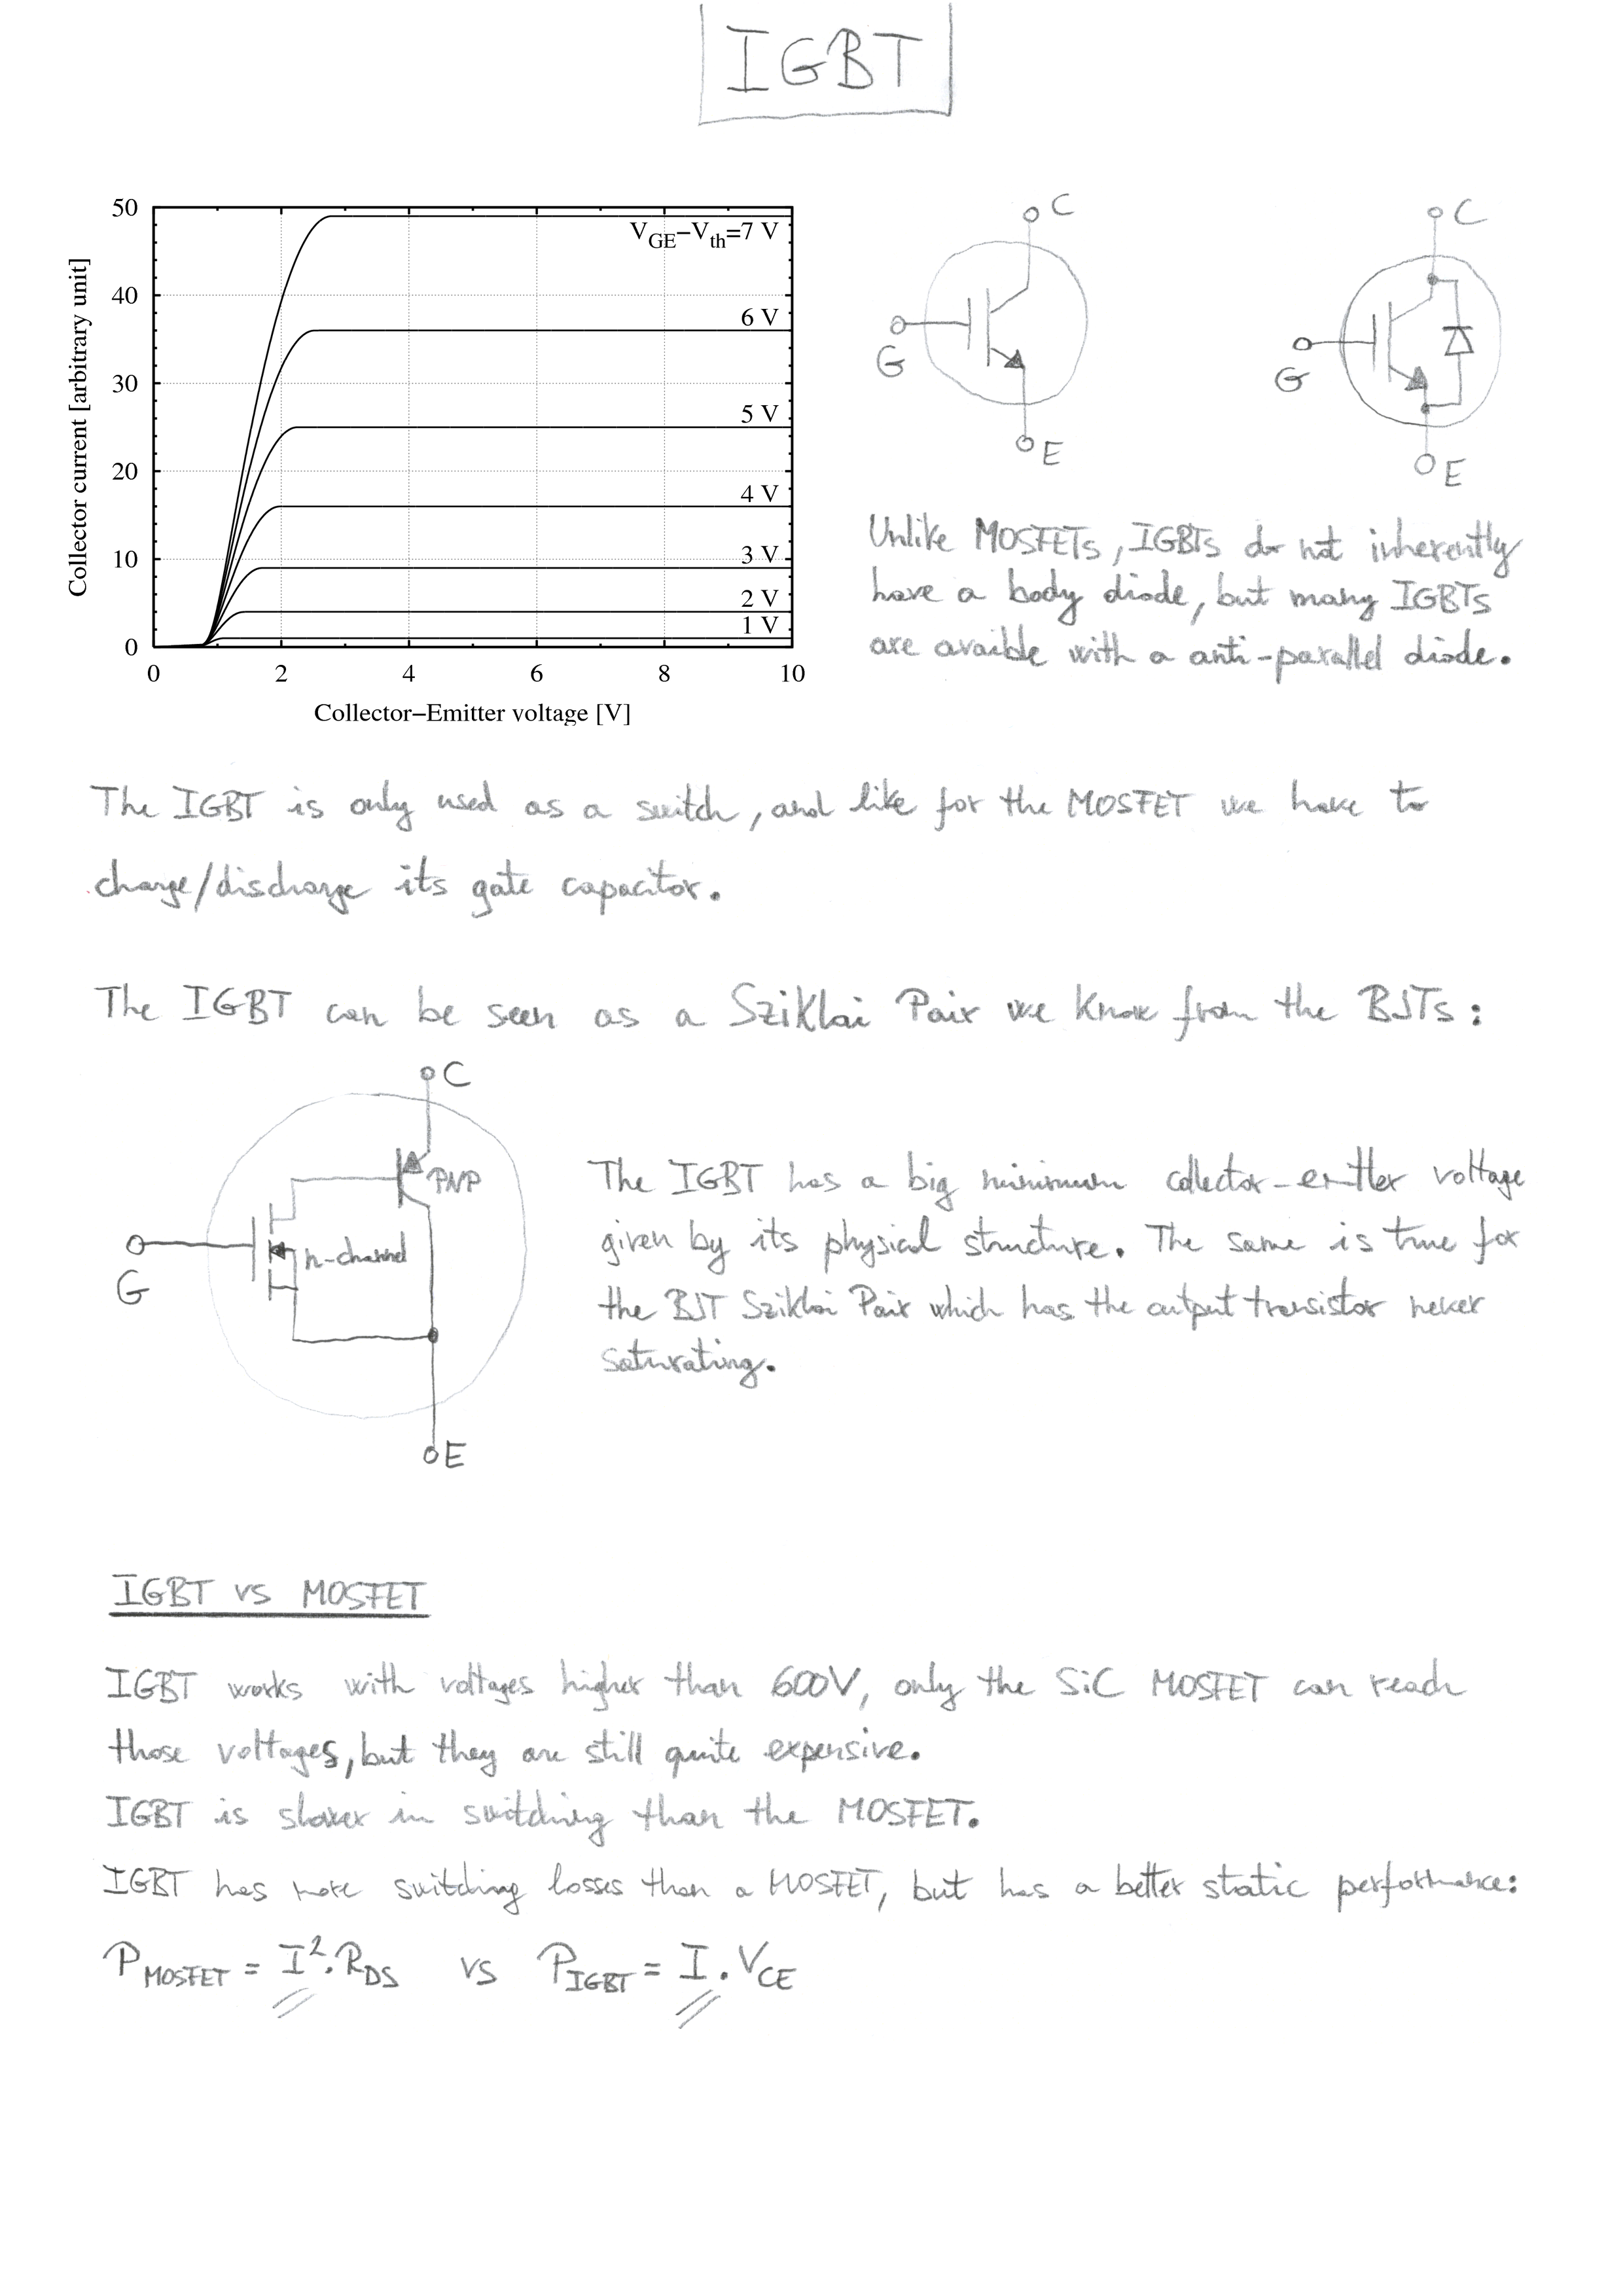 IGBT
50
40
30
20
10
0
0 2 4 6 8 10
Collector current [arbitrary unit]
Collector−Emitter voltage [V]
VGE−Vth=7 V
6 V
5 V
4 V
3 V
2 V
1 V
C
G
E
C
G
E
Unlike MOSFETs, IGBTs do not inherently
have a body diode, but many IGBTs
are avaible with a anti-parallel diode.
The IGBT is only used as a switch, and like for the MOSFET we have to
charge/discharge its gate capacitor.
The IGBT can be seen as a Sziklai Pair we know from the BJTs:
C
PNP
n-channel
G
E
The IGBT has a big minimum collector-emitter voltage
given by its physical structure. The same is true for
the BJT Sziklai Pair which has the output transistor never
saturating.
IGBT vs MOSFET
IGBT works with voltages higher than 600V, only the SiC MOSFET can reach
those voltages, but they are still quite expensive.
IGBT is slower in switching than the MOSFET.
IGBT has more switching losses than a MOSFET, but has a better static performance:
PMOSFET = I².RDS vs PIGBT = I.VCE